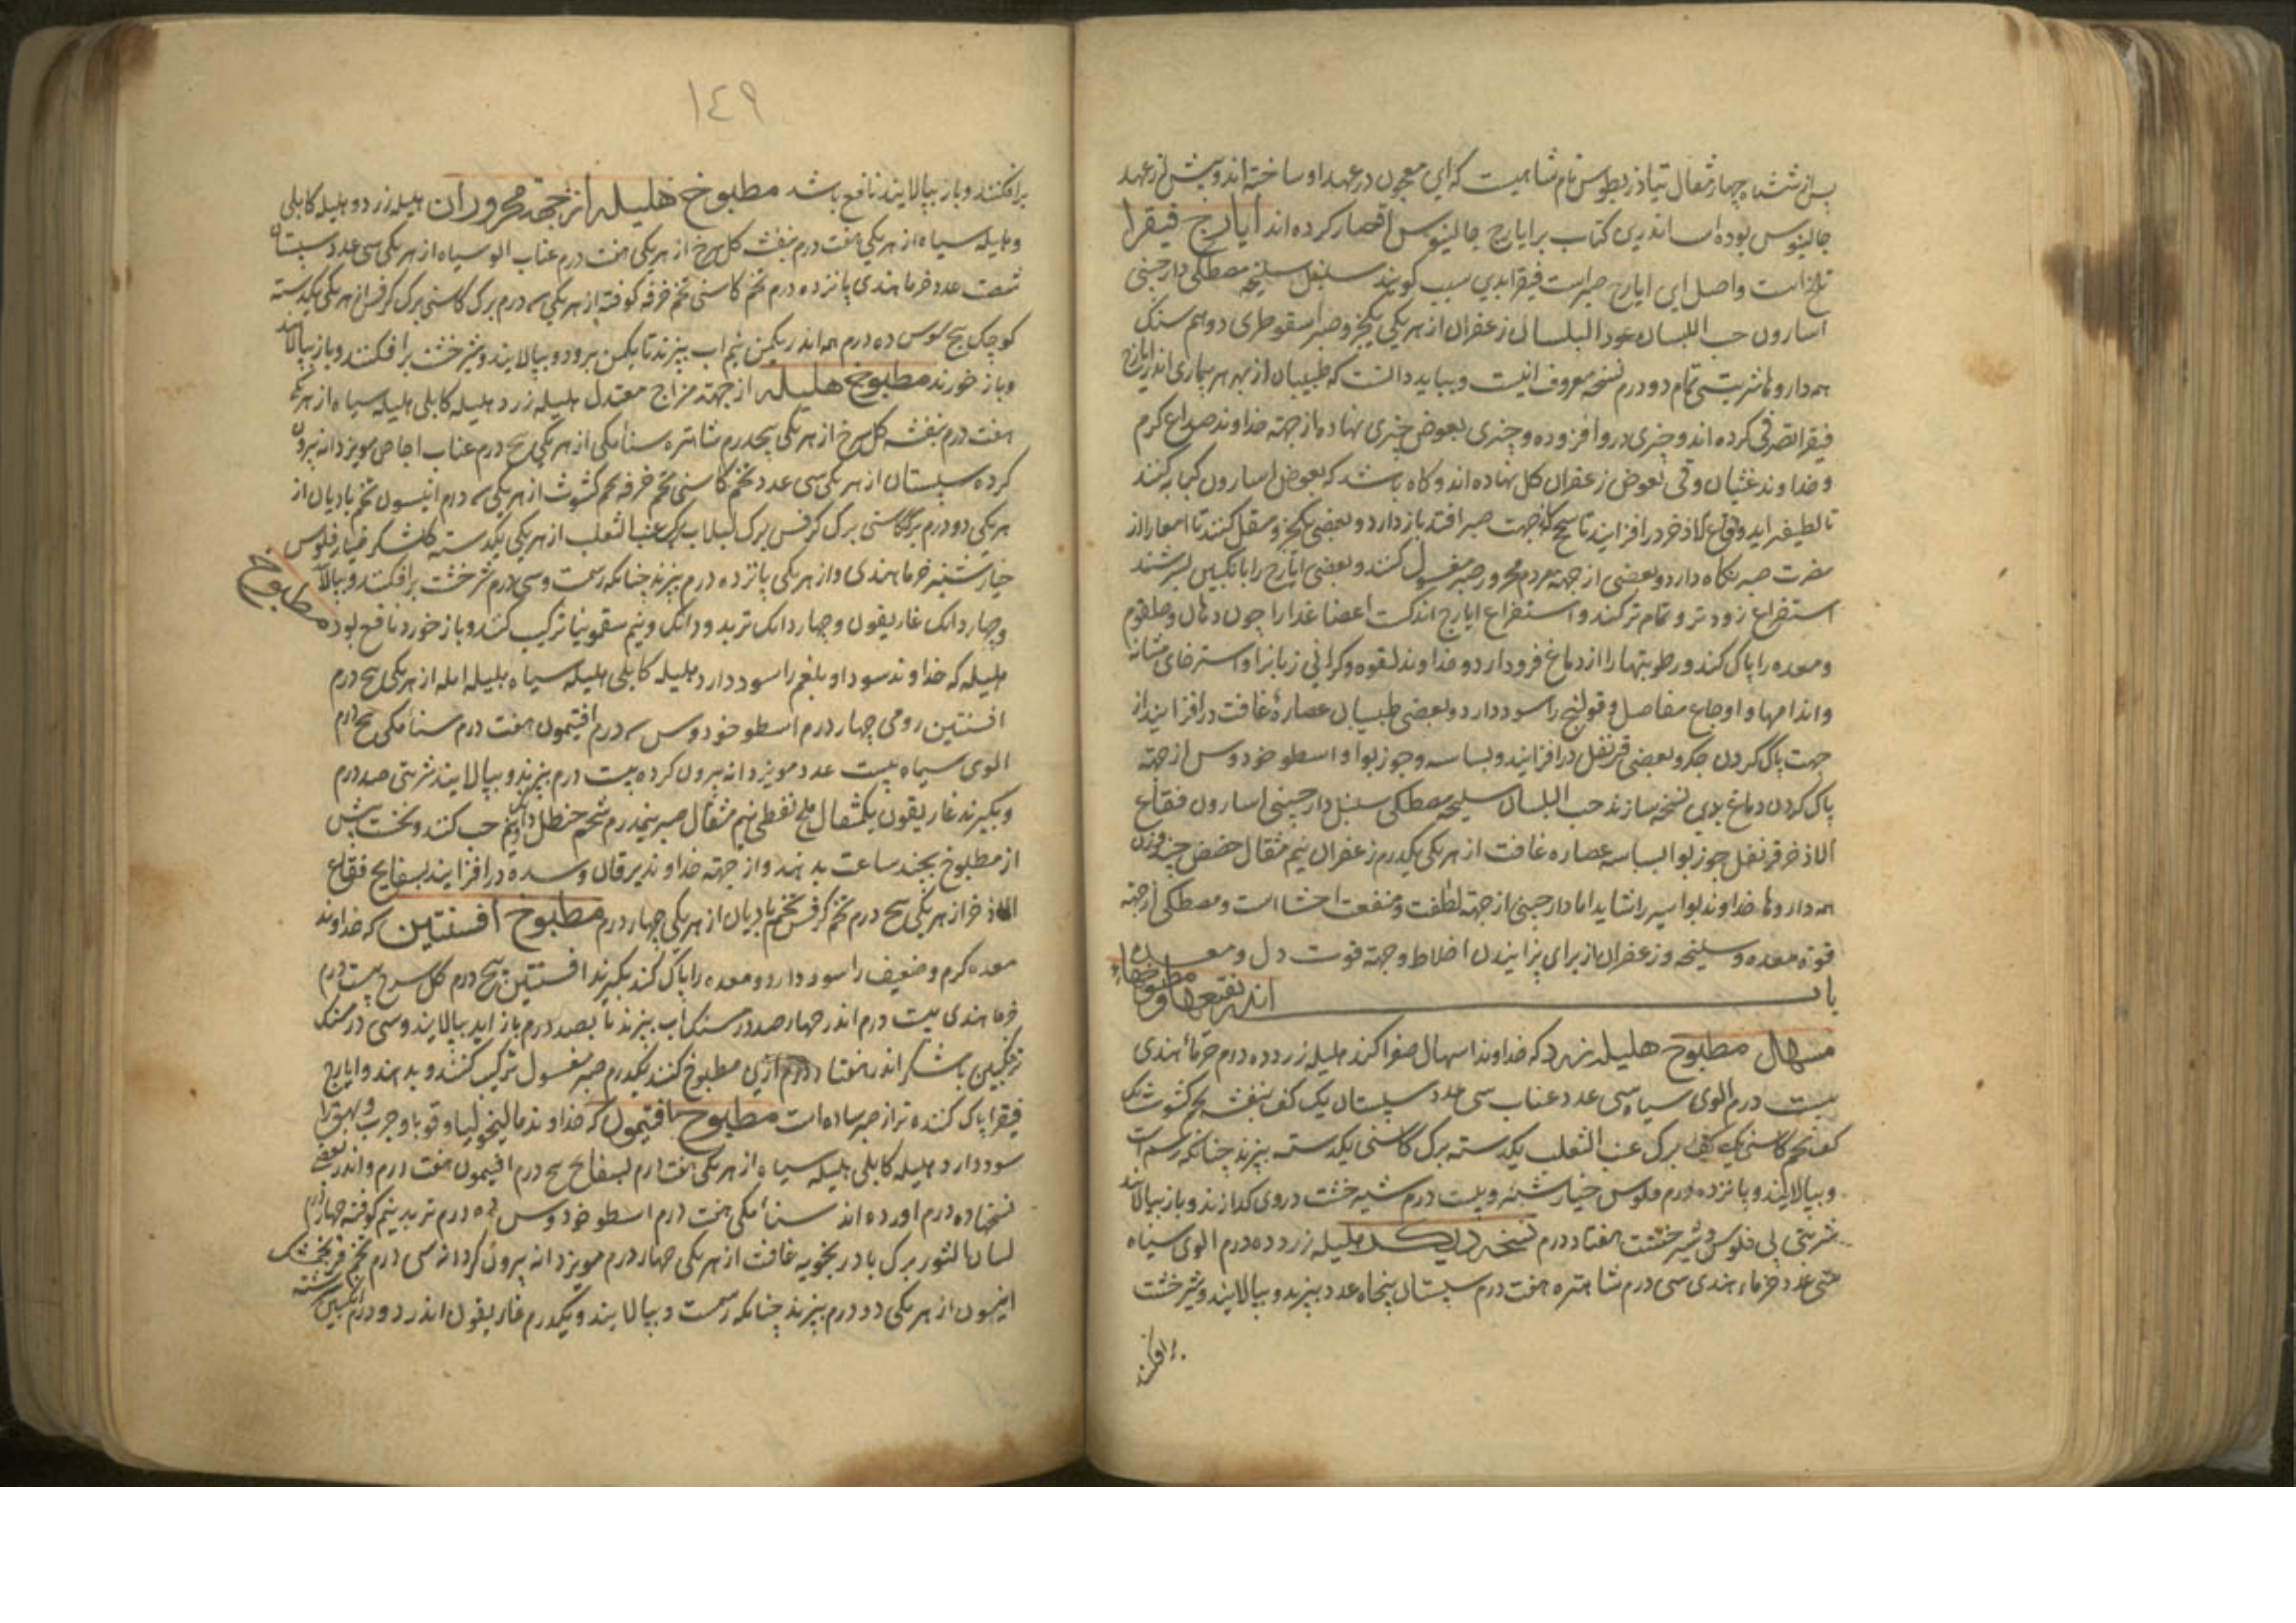 پس از ششماه چهار مثقال تیاذریطوس نام شاهیست که این معجون در عهد او ساخته اند و پیش از عهد
جالینوس بوده است اندرین کتاب بر ایارج جالینوس اقتصار کرده اند ایارج فیقرا
تلخ است واصل این ایارج صبر است فیقرا بدین سبب گویند سنبل سلیخه مصطکی دارچینی
اسارون حب البلسان عود البلسان زعفران از هر یکی یکجزو صبر اسقوطری دو هم سنک
همه داروها شربتی تمام دو درم نسخه معروف اینست و بباید دانست که طبیبان از بهر هر بیماری اندر ایارج
فیقرا تصرفی کرده اند و چیزی درو افزوده و چیزی بعوض چیزی نهاده از جهة خداوند صداع کرم
و خداوند غثیان و قی بعوض زعفران کل نهاده اند و کاه باشد که بعوض اسارون کبابه کنند
تا لطیفتر اید و فقاع الاذخر در افزایند تا سحج که از جهت صبر افتد باز دارد و بعضی یکجزو مقل کنند تا امعا را از
مضرت صبر نکاه دارد و بعضی از جهة مردم محرور صبر مغسول کنند و بعضی ایارج را بانکبین بسرشند
استفراغ زودتر و تمام تر کند و استفراغ ایارج اندکست اعضا غدا را چون دهان و حلقوم
و معده را پاک کند و رطوبتها را از دماغ فرود ارد و خداوند لقوه و کرانی زبانرا و استرخای مثانه
و اندامها و اوجاع مفاصل و قولنج را سود دارد و بعضی طبیبان عصارهٔ غافت در افزایند از
جهت پاک کردن جکر و بعضی قرنفل در افزایند و بسباسه و جوز بوا و اسطوخودوس از جهة
پاک کردن دماغ بدین نسخه سازند حب البلسان سلیخه مصطکی سنبل دارچینی اسارون فقاع
الاذخر قرنفل جوز بوا البسباسه عصاره غافت از هر یکی یکدرم زعفران نیم مثقال حضض چند وزن
همه داروها خداوند بواسیر را نشاید اما دارچینی از جهة لطافت و منفعت احشا است و مصطکی از جهة
قوة معده و سلیخه و زعفران از برای پزانیدن اخلاط و جهة قوت دل و معده
باب اندر نقیعها و مطبوخهاء
مسهل مطبوخ هلیله زرد که خداوند اسهال صفرا کند هلیله زرد ده درم خرماء هندی
بیست درم الوی سیاه سی عدد عناب سی عدد سپستان یک کف بنفشه تخم کشوث یک
کف تخم کاسنی یک کف برک عنب الثعلب یکدسته برک کاسنی یکدسته بپزند چنانکه رسم است
و بپالایند و پانزده درم فلوس خیارشنبر و بیست درم شیرخشت در وی کدازند و باز بپالایند
شربتی بی فلوس و شیرخشت هفتاد درم نسخه دیکر هلیله زرد ده درم الوی سیاه
سی عدد خرماء هندی سی درم شاهتره هفت درم سپستان پنجاه عدد بپزند و بپالایند و شیرخشت
برافکنند
١٤٩
برافکنند و باز بپالایند نافع باشد مطبوخ هلیله از جهة محروران هلیله زرد و هلیله کابلی
و هلیله سیاه از هر یکی هفت درم بنفشه کل سرخ از هر یکی هفت درم عناب الو سیاه از هر یکی سی عدد سپستان
شصت عدد خرما هندی پانزده درم تخم کاسنی تخم خرفه کوفته از هر یکی سه درم برک کاسنی برک کرفس از هر یکی یکدسته
کوچک بیخ سوس ده درم همه اندر یکمن نیم اب بپزند تا یکمن برود و بپالایند و شیرخشت برافکنند و باز بپالایند
و باز خورند مطبوخ هلیله از جهة مزاج معتدل هلیله زرد هلیله کابلی هلیله سیاه از هر یکی
هفت درم بنفشه کل سرخ از هر یکی پنجدرم شاهتره سنامکی از هر یکی پنج درم عناب اجاص مویز دانه بیرون
کرده سپستان از هر یکی سی عدد تخم کاسنی تخم خرفه تخم کشوث از هر یکی سه درم انیسون تخم بادیان از
هر یکی دو درم برک کاسنی برک کرفس برک لبلاب برک عنب الثعلب از هر یکی یکدسته کلشکر خیار فلوس
خیارشنبر خرما هندی و از هر یکی پانزده درم بپزند چنانکه رسمست و سی درم شیرخشت برافکنند و بپالایند
و چهار دانک غاریقون و چهار دانک تربد و دانک و نیم سقمونیا ترکیب کنند و باز خورد نافع بود مطبوخ
هلیله که خداوند سودا و بلغم را سود دارد هلیله کابلی هلیله سیاه بلیله امله از هر یکی پنج درم
افسنتین رومی چهار درم اسطوخودوس سه درم افتیمون هفت درم سنامکی پنج درم
الوی سیاه بیست عدد مویز دانه بیرون کرده بیست درم بپزند و بپالایند شربتی صد درم
و بکیرند غاریقون یکمثقال ملح نفطی نیم مثقال صبر نیمدرم شحم حنظل دانکی و نیم حب کنند و نخست پیش
از مطبوخ بچند ساعت بدهند و از جهة خداوند یرقان و سده در افزایند بسفایج فقاع
الاذخر از هر یکی پنج درم تخم کرفس تخم بادیان از هر یکی چهار درم مطبوخ افسنتین که خداوند
معده کرم و ضعیف را سود دارد و معده را پاک کند بکیرند افسنتین پنج درم کل سرخ بیست درم
خرما هندی بیست درم اندر چهار صد درسنک اب بپزند تا بصد درم باز اید بپالایند و سی درسنک
ترنجبین یا شکر اندر هفتاد درم ازین مطبوخ کنند یکدرم صبر مغسول ترکیب کنند و بدهند و ایارج
فیقرا پاک کننده تر از صبر ساده است مطبوخ افتیمون که خداوند مالیخولیا و قوبا و جرب و بهق را
سود دارد هلیله کابلی هلیله سیاه از هر یکی هفت درم بسفایج پنج درم افتیمون هفت درم و اندر بعضی
نسختها ده درم اورده اند سناءمکی هفت درم اسطوخودوس ده درم تربد نیم کوفته چهار درم
لسان الثور برک بادرنجبویه غافت از هر یکی چهار درم مویز دانه بیرون کرده سی درم تخم فرنجمشک
انیسون از هر یکی دو درم بپزند چنانکه رسمست و بپالایند و یکدرم غاریقون اندر دو درم انکبین سرشته